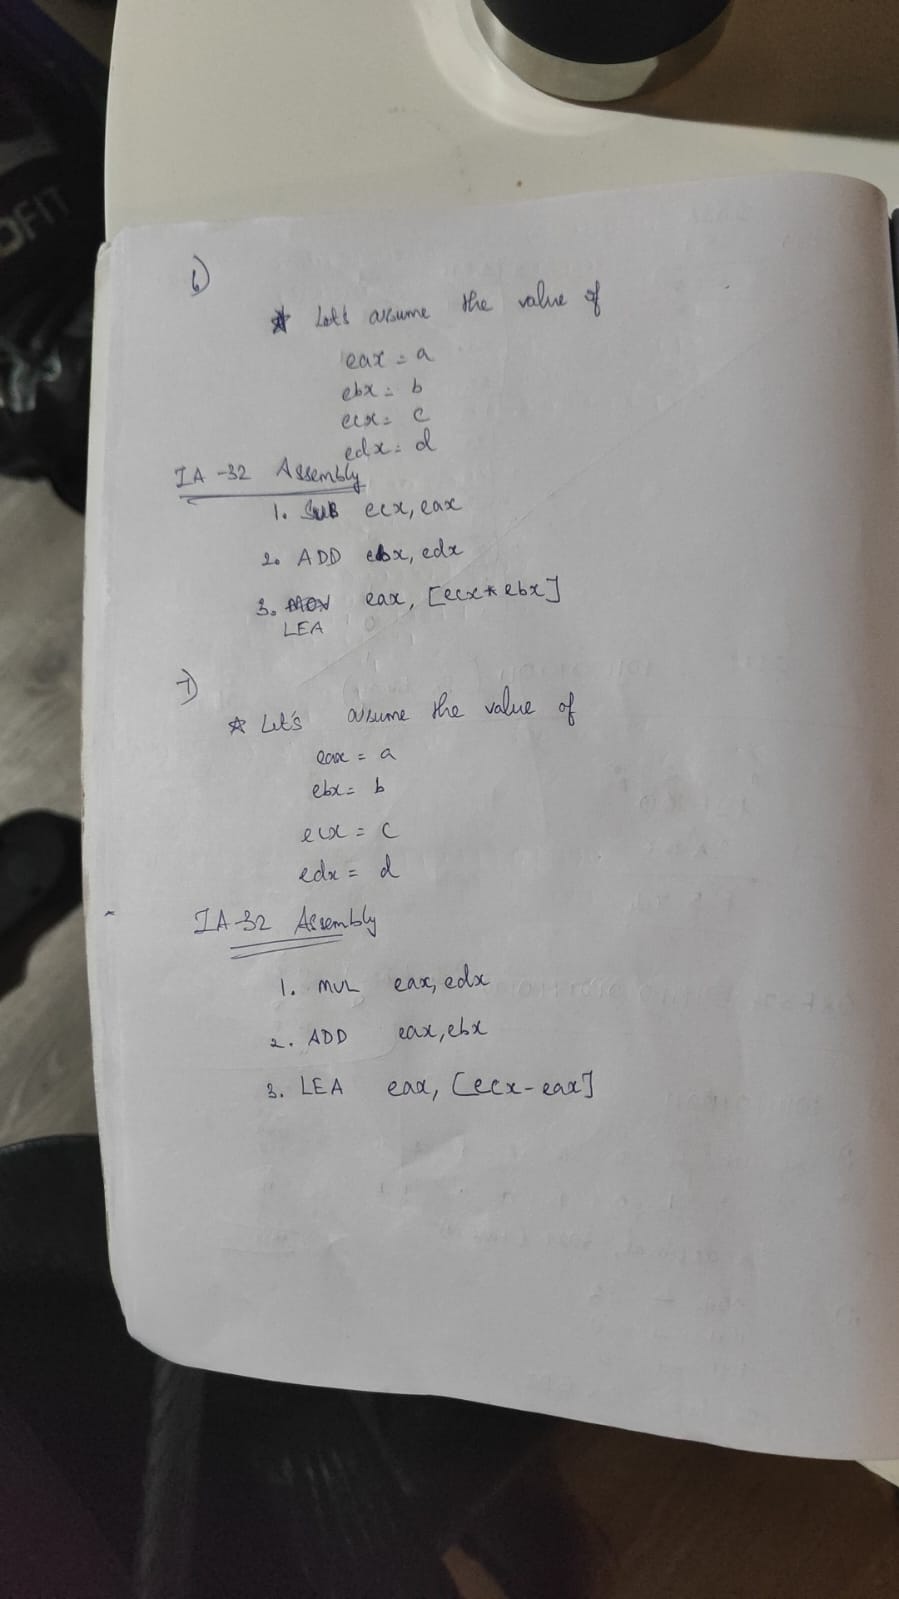 OFIT
6)
* Let's assume the value of
eax = a
ebx = b
ecx = c
edx = d
IA-32 Assembly
1. SUB ecx, eax
2. ADD ebx, edx
3. MOV eax, [ecx*ebx]
LEA
7)
* Let's assume the value of
eax = a
ebx = b
ecx = c
edx = d
IA-32 Assembly
1. MUL eax, edx
2. ADD eax, ebx
3. LEA eax, [ecx-eax]